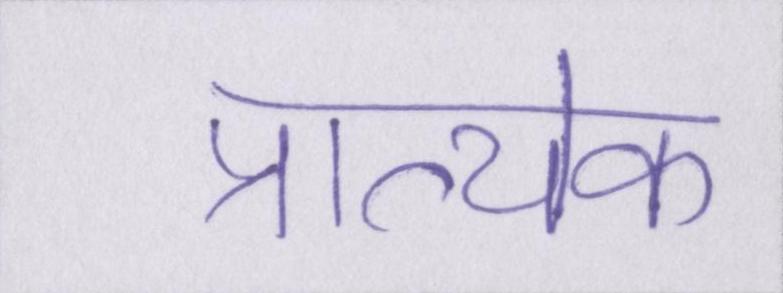 प्रात्येक